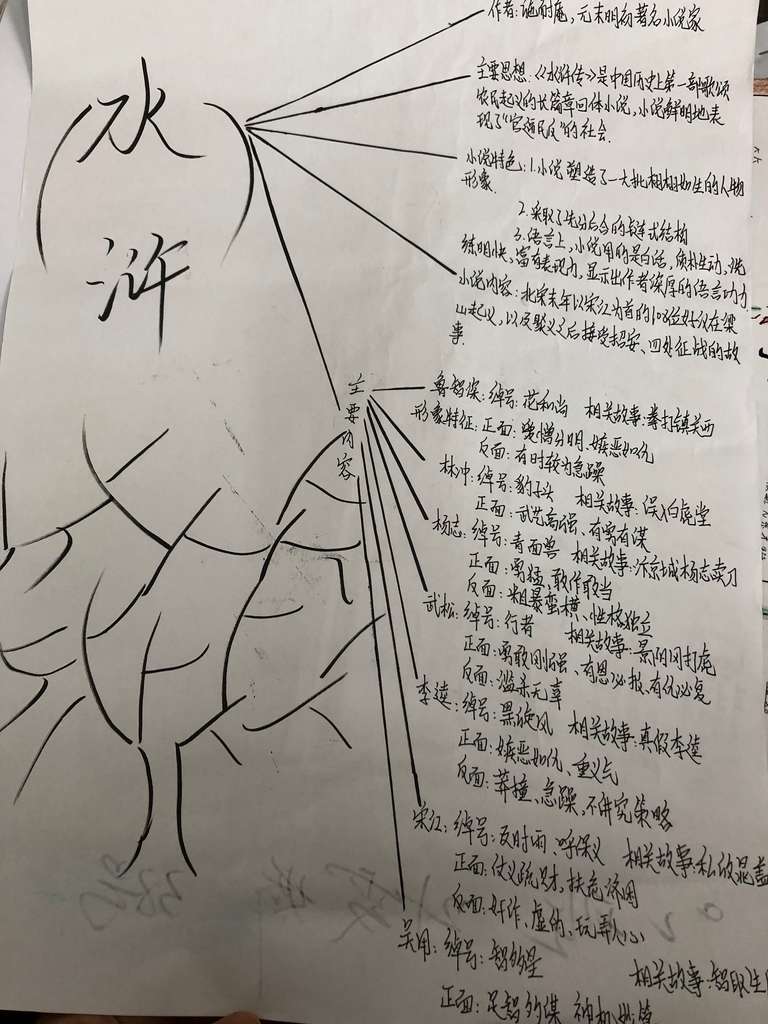 水
浒
作者：施耐庵，元末明初著名小说家
主要思想：《水浒传》是中国历史上第一部歌颂
农民起义的长篇章回体小说，小说鲜明地表
现了“官逼民反”的社会.
小说特色：1.小说塑造了一大批栩栩如生的人物
形象.
2.采取了先分后合的链式结构
3.语言上，小说用的是白话，质朴生动，洗
练明快，富有表现力，显示出作者深厚的语言功力
小说内容：北宋末年以宋江为首的108位好汉在梁
山起义，以及聚义之后接受招安、四处征战的故
事.
主要内容
鲁智深：绰号：花和尚 相关故事：拳打镇关西
形象特征：正面：爱憎分明、嫉恶如仇
反面：有时较为急躁
林冲：绰号：豹子头 相关故事：误入白虎堂
正面：武艺高强、有勇有谋
杨志：绰号：青面兽 相关故事：汴京城杨志卖刀
正面：勇猛、敢作敢当
反面：粗暴蛮横、性格独立
武松：绰号：行者 相关故事：景阳冈打虎
正面：勇敢刚强、有恩必报、有仇必复
反面：滥杀无辜
李逵：绰号：黑旋风 相关故事：真假李逵
正面：嫉恶如仇、重义气
反面：莽撞、急躁，不讲究策略
宋江：绰号：及时雨、呼保义 相关故事：私放晁盖
正面：仗义疏财，扶危济困
反面：奸诈、虚伪、玩弄人心
吴用：绰号：智多星 相关故事：智取生
正面：足智多谋 神机妙算